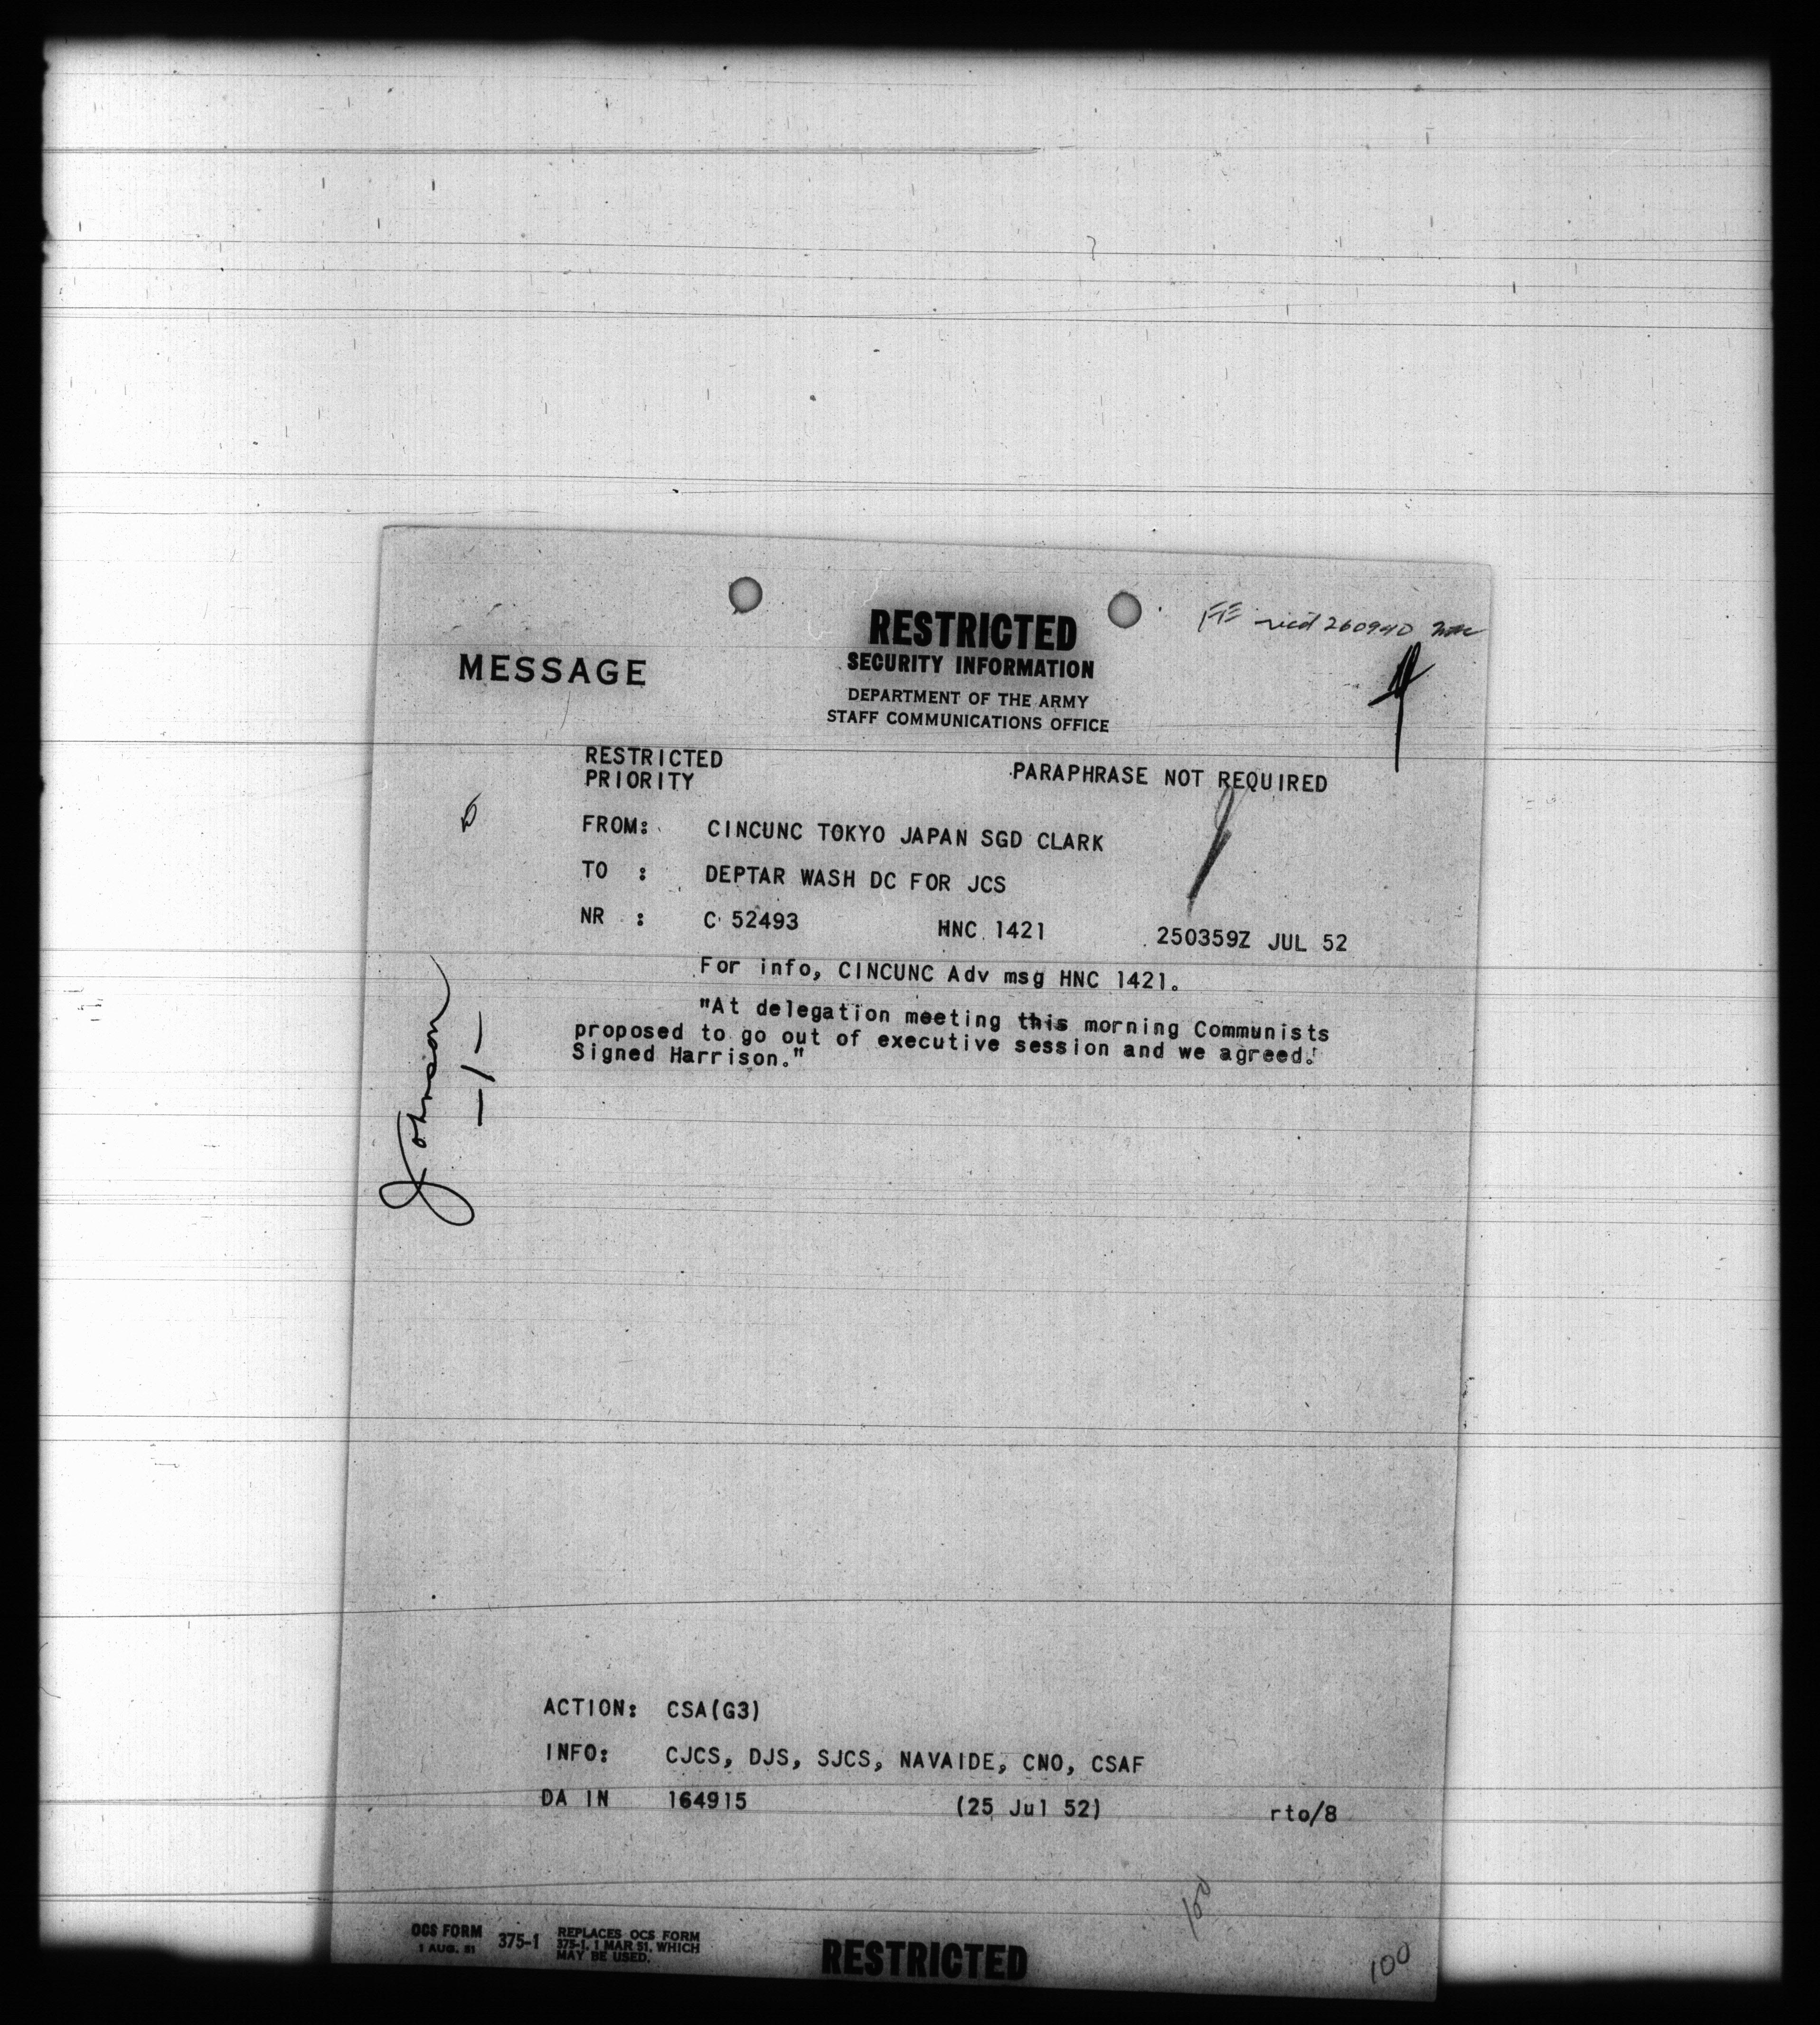 FE recd 260940
RESTRICTED
SECURITY INFORMATION
MESSAGE
DEPARTMENT OF THE ARMY
STAFF COMMUNICATIONS OFFICE
RESTRICTED
PRIORITY
PARAPHRASE NOT REQUIRED
FROM: CINCUNC TOKYO JAPAN SGD CLARK
TO : DEPTAR WASH DC FOR JCS
NR : C 52493 HNC 1421 250359Z JUL 52
For info, CINCUNC Adv msg HNC 1421.
"At delegation meeting this morning Communists
proposed to go out of executive session and we agreed.
Signed Harrison."
Johnson
-1-
ACTION: CSA(G3)
INFO: CJCS, DJS, SJCS, NAVAIDE, CNO, CSAF
DA IN 164915 (25 Jul 52) rto/8
100
OCS FORM
1 AUG. 51
375-1
REPLACES OCS FORM
375-1, 1 MAR 51, WHICH
MAY BE USED.
RESTRICTED
100